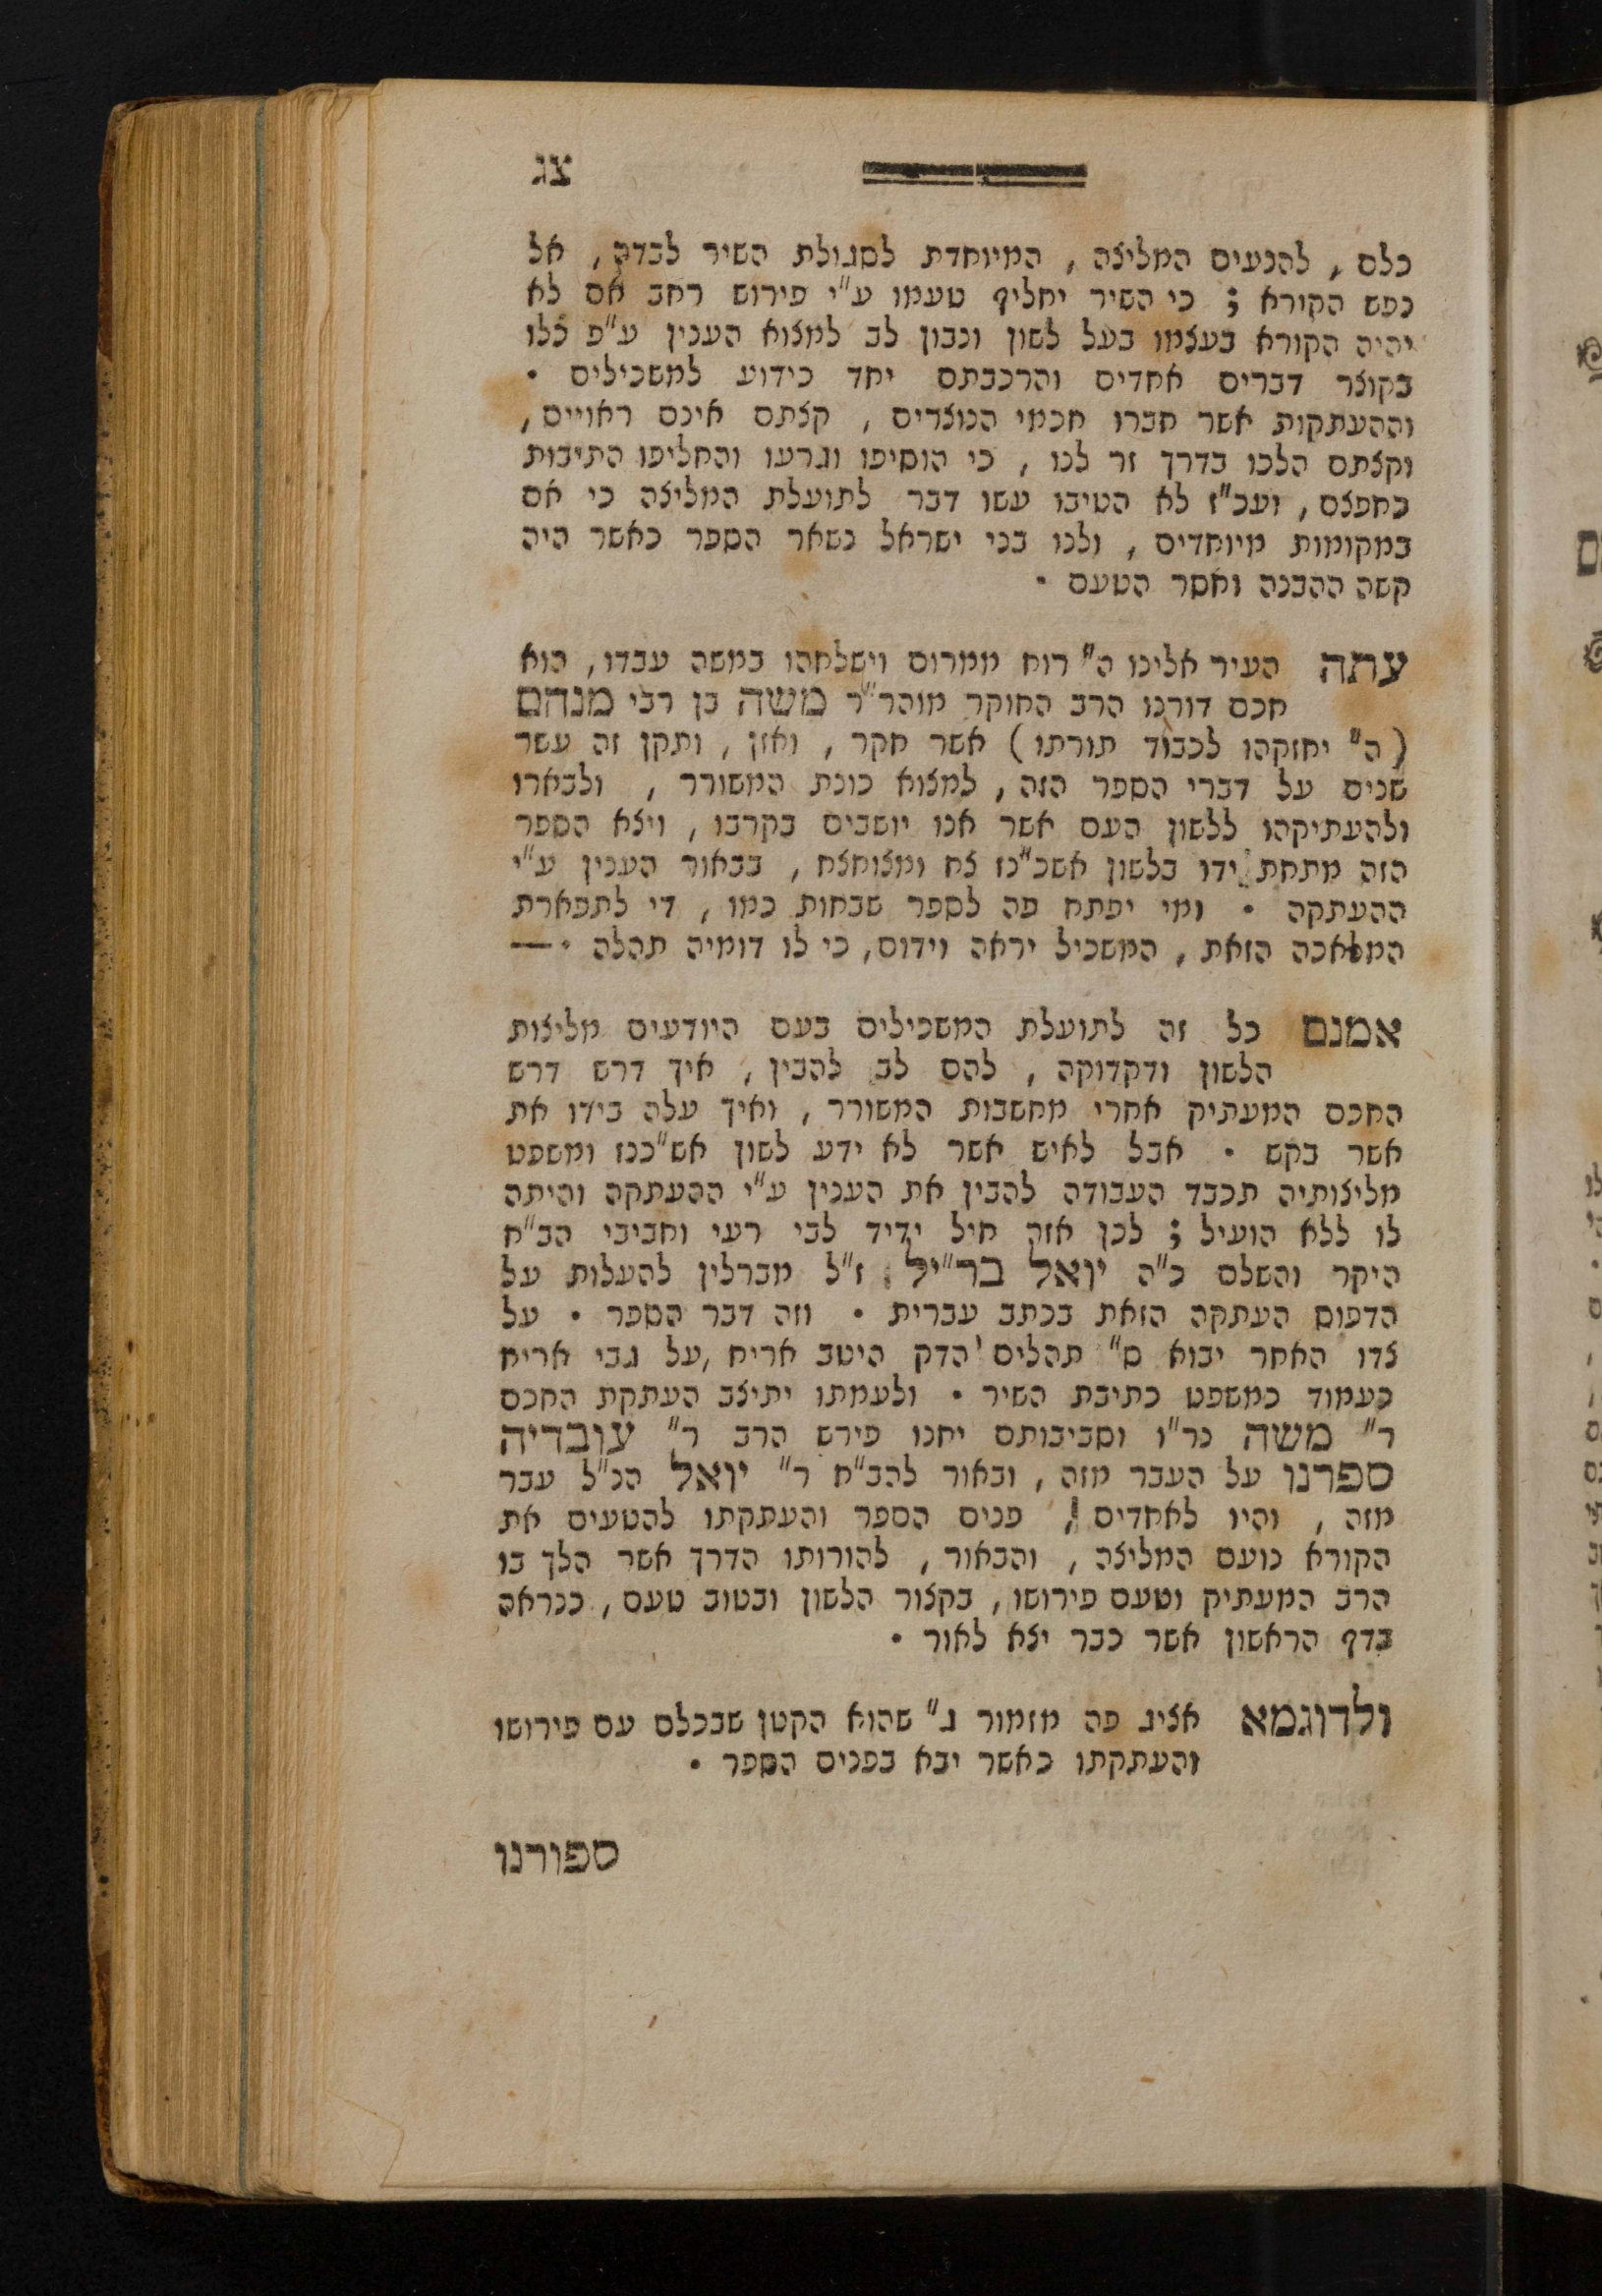 צג
כלם, להנעים המליצה, המיוחדת לסגולת השיר לבדה, אל
נפש הקורא ; כי השיר יחליף טעמו ע"י פירוש רחב אם לא
יהיה הקורא בעצמו בעל לשון ונבון לב למצוא הענין ע"פ כלו
בקוצר דברים אחדים והרכבתם יחד כידוע למשכילים ·
וההעתקות אשר חברו חכמי הנוצרים, קצתם אינם ראויים,
וקצתם הלכו בדרך זר לנו, כי הוסיפו וגרעו והחליפו התיבות
כחפצם, ועכ"ז לא הטיבו עשו דבר לתועלת המליצה כי אם
במקומות מיוחדים, ולנו בני ישראל נשאר הספר כאשר היה
קשה ההבנה וחסר הטעם ·
עתה העיר אלינו ה" רוח ממרום וישלחהו במשה עבדו, הוא
חכם דורנו הרב החוקר מוהר"ר משה בן רבי מנחם
(ה" יחזקהו לכבוד תורתו) אשר חקר, ואזן, ותקן זה עשר
שנים על דברי הספר הזה, למצוא כונת המשורר, ולבארו
ולהעתיקהו ללשון העם אשר אנו יושבים בקרבו, ויצא הספר
הזה מתחת ידו בלשון אשכ"נז צח ומצוחצח, בבאור הענין ע"י
ההעתקה · ומי יפתח פה לספר שבחות כמו, די לתפארת
המלאכה הזאת, המשכיל יראה וידום, כי לו דומיה תהלה · —
אמנם כל זה לתועלת המשכילים בעם היודעים מליצות
הלשון ודקדוקה, להם לב להבין, איך דרש דרש
החכם המעתיק אחרי מחשבות המשורר, ואיך עלה בידו את
אשר בקש · אבל לאיש אשר לא ידע לשון אש"כנז ומשפט
מליצותיה תכבד העבודה להבין את הענין ע"י ההעתקה והיתה
לו ללא הועיל ; לכן אזר חיל ידיד לבי רעי וחביבי הב"ח
היקר והשלם כ"ה יואל בר"יל ז"ל מברלין להעלות על
הדפוס העתקה הזאת בכתב עברית · וזה דבר הספר · על
צדו האחר יבוא ס" תהלים הדק היטב אריח, על גבי אריח
כעמוד כמשפט כתיבת השיר · ולעמתו יתיצב העתקת החכם
ר" משה נר"ו וסביבותם יחנו פירש הרב ר" עובדיה
ספרנו על העבר מזה, ובאור להב"ח ר" יואל הנ"ל עבר
מזה, והיו לאחדים, פנים הספר והעתקתו להטעים את
הקורא נועם המליצה, והבאור, להורותו הדרך אשר הלך בו
הרב המעתיק וטעם פירושו, בקצור הלשון ובטוב טעם, כנראה
בדף הראשון אשר כבר יצא לאור ·
ולדוגמא אציג פה מזמור ג" שהוא הקטן שבכלם עם פירושו
והעתקתו כאשר יבא בפנים הספר ·
ספורנו